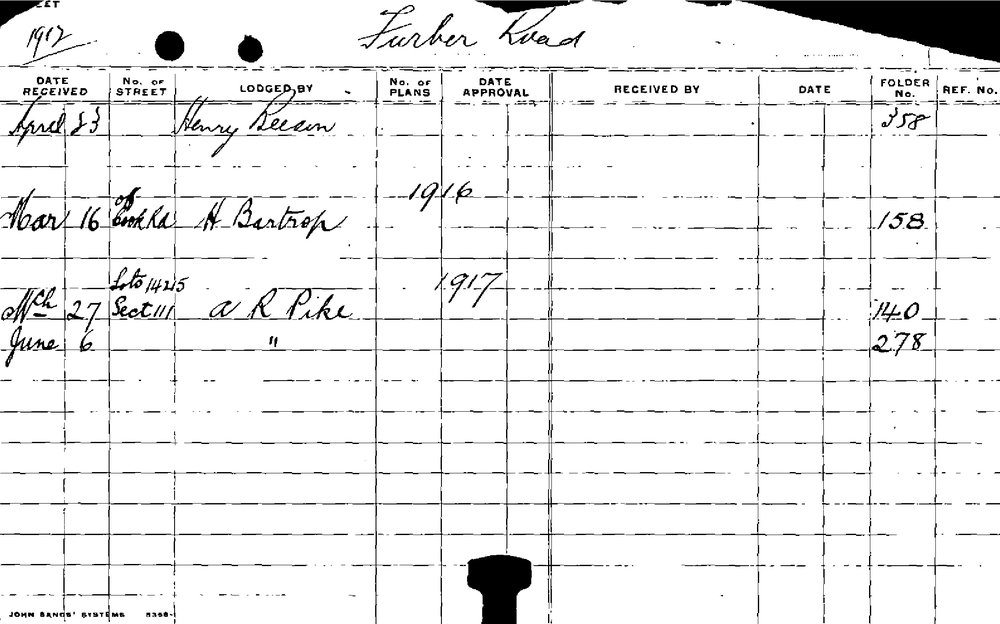 EET
1912
Furber Road
DATE RECEIVED No. OF STREET LODGED BY No. OF PLANS DATE APPROVAL RECEIVED BY DATE FOLDER No. REF. No.
April 23 Henry Beeson 358
1916
off
Mar 16 Cook Rd H Bartrop 158
Lots 14 & 15 1917
Mch 27 Sect 111 A R Pike 140
June 6 " 278
JOHN SANDS' SYSTEMS